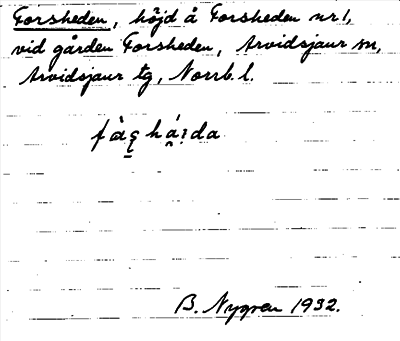 Forsheden, höjd å Forsheden nr 1,
vid gården Forsheden, Arvidsjaur sn,
Arvidsjaur tg, Norrb. l.
B. Nygren 1932.